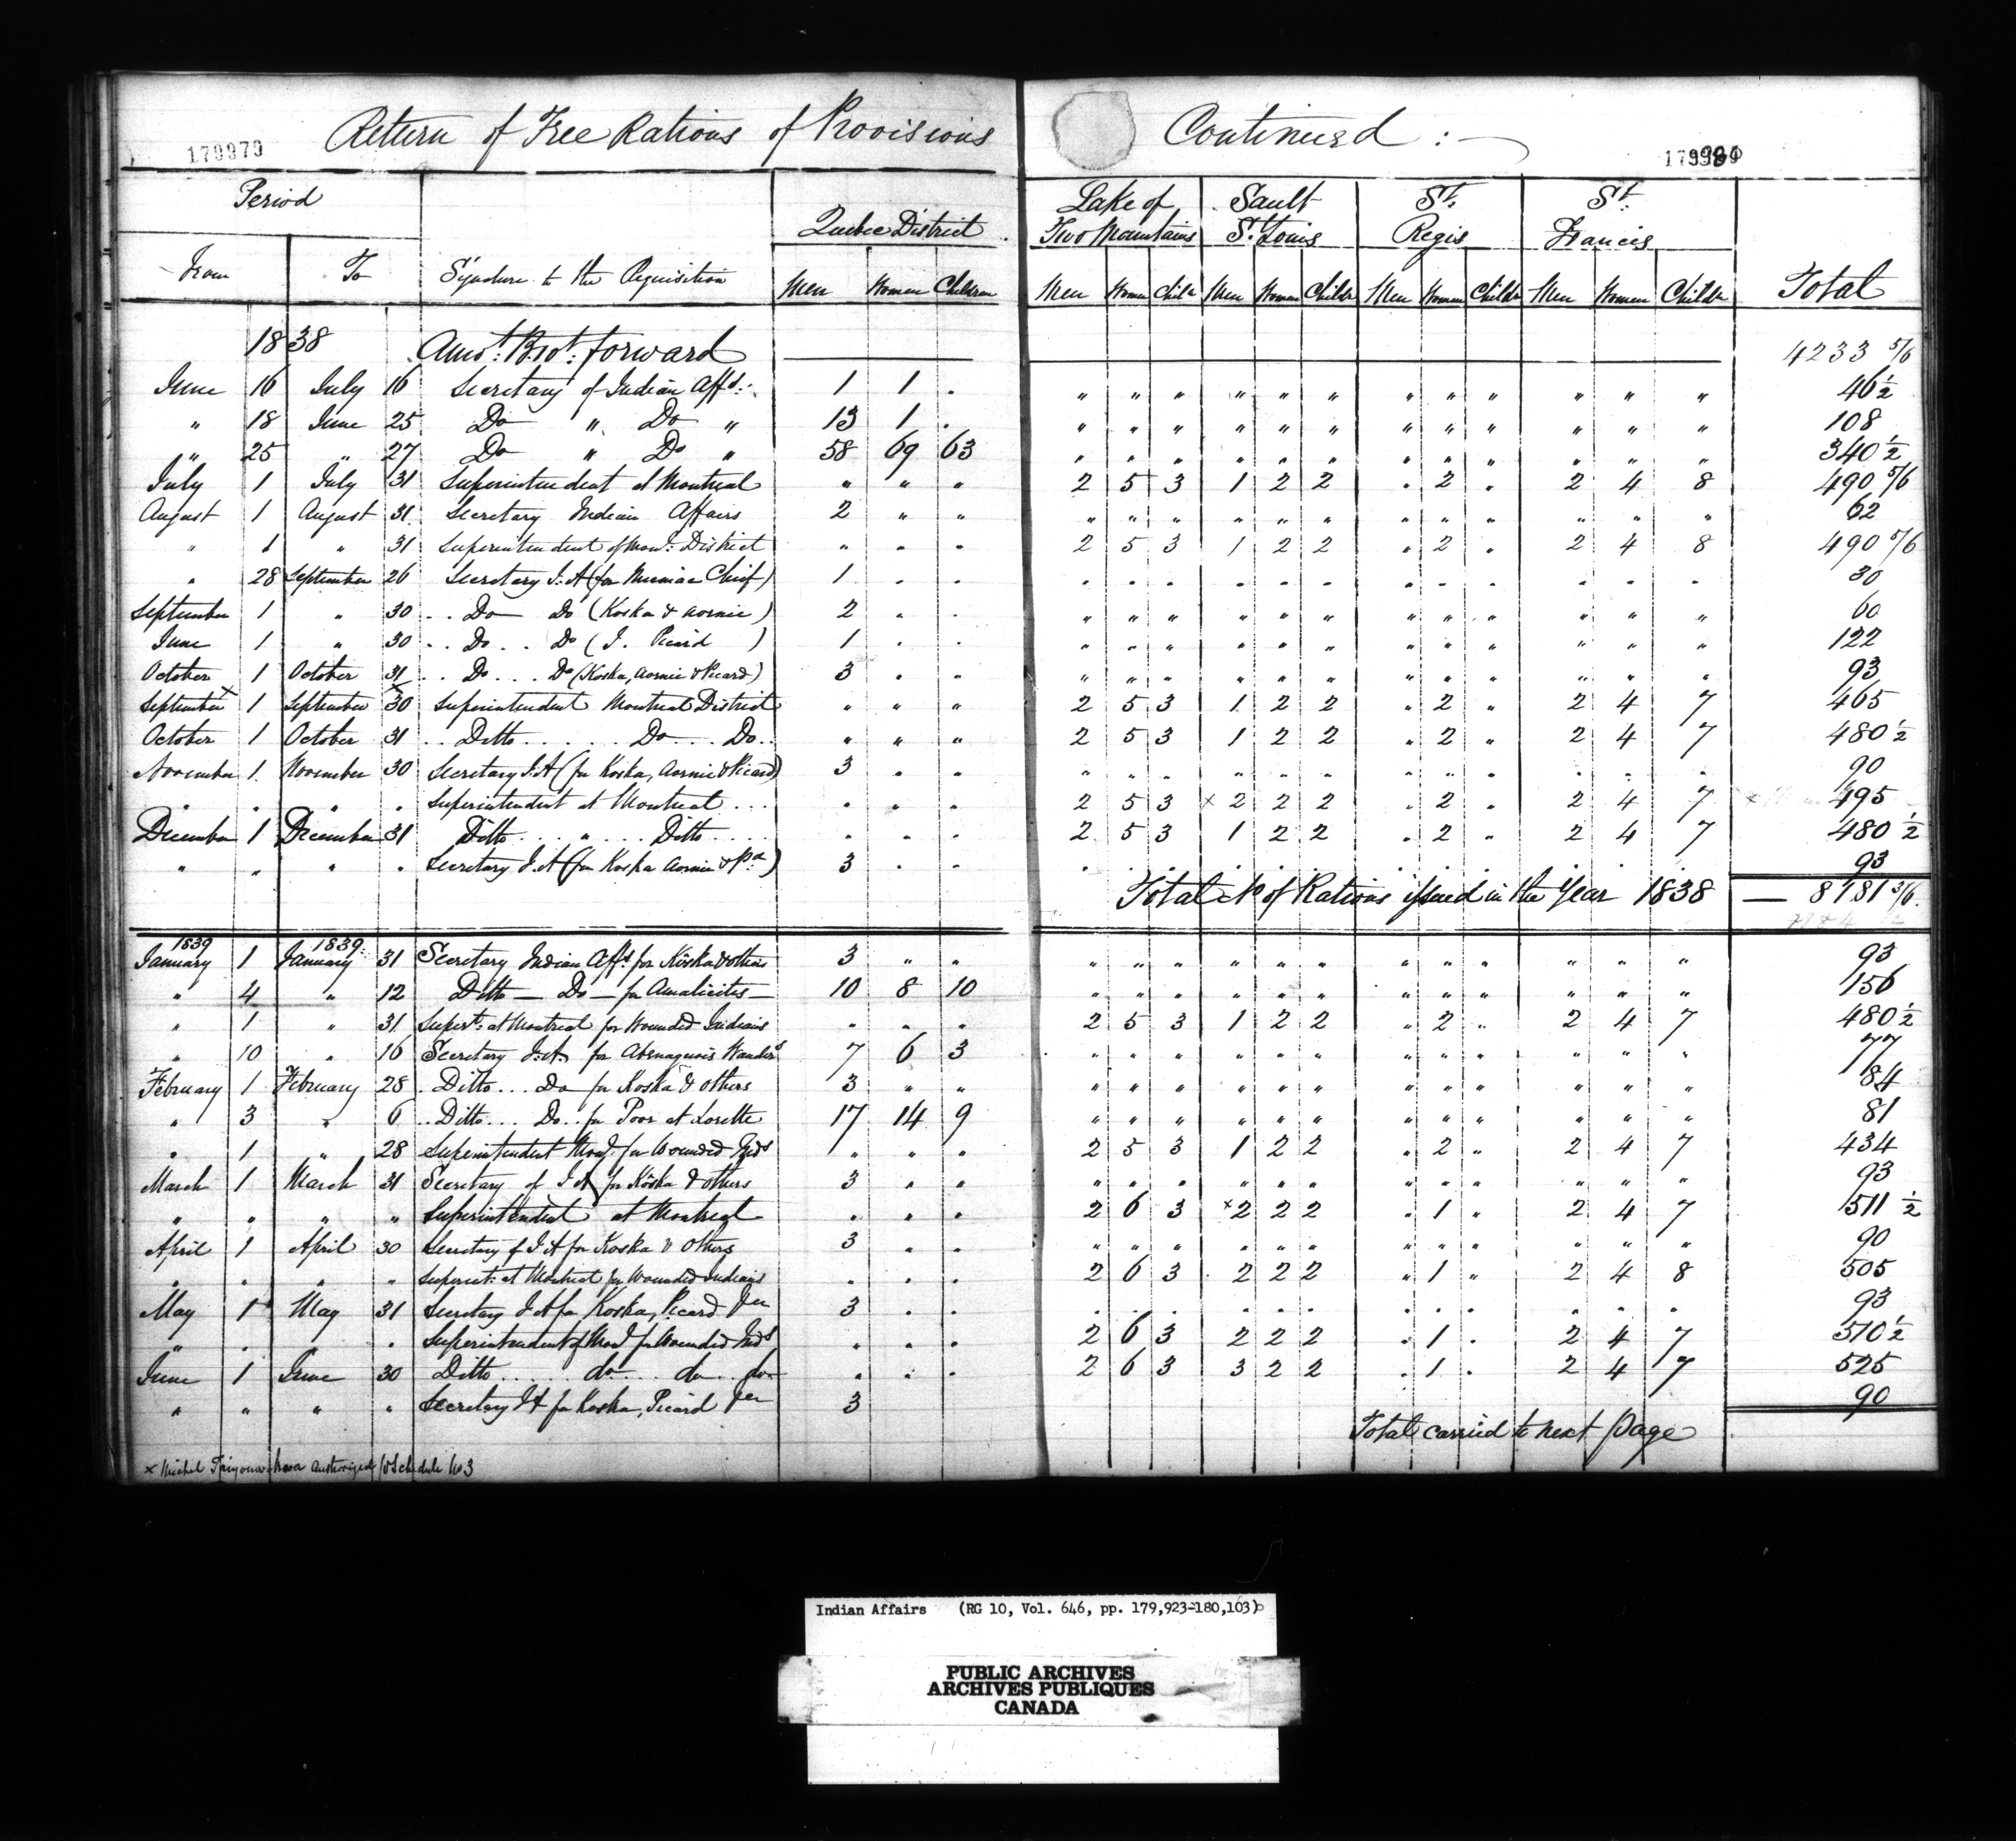 Return of Free Rations of Provisions Continued :—
179979
Period Quebec District Lake of Two Mountains Sault St. Louis St. Regis St. Francis
From To Signature to the Requisition Men Women Children Men Women Childn Men Women Childn Men Women Childn Men Women Childn Total
1838 Amot. Brot. forward 4233 5/6
June 16 July 16 Secretary of Indian Affs. 1 1 . " " " " " " " " " " " " 46 1/2
" 18 June 25 Do " Do " 13 1 . " " " " " " " " " " " " 108
" 25 " 27 Do " Do " 58 69 63 " " " " " " " " " " " " 340 1/2
July 1 July 31 Superintendent at Montreal " " " 2 5 3 1 2 2 . 2 . 2 4 8 490 5/6
August 1 August 31 Secretary Indian Affairs 2 " " " " " " " " " " " " " " 62
" 1 " 31 Superintendent of Monl. District " " " 2 5 3 1 2 2 . 2 . 2 4 8 490 5/6
" 28 September 26 Secretary I.A (for Micmac Chief) 1 . . . . . . . . . . . . . . 30
September 1 " 30 .. Do Do (Koska & Aornie) 2 . . " " " " " " " " " " " " 60
June 1 " 30 .. Do .. Do (I. Picard ) 1 . . " " " " " " " " " " " " 122
October 1 October 31 .. Do .... Do (Koska, Aornie & Picard) 3 . " " " " " " " " " " " " " 93
September x 1 September x 30 Superintendent Montreal District " " " 2 5 3 1 2 2 . 2 " 2 4 7 465
October 1 October 31 .. Ditto ...... Do ... Do .. " " " 2 5 3 1 2 2 . 2 " 2 4 7 480 1/2
November 1. November 30 Secretary I.A (for Koska, Aornie & Picard) 3 . . " " " " " " " " " . . . 90
. . " . Superintendent at Montreal ... . " . 2 5 3 x 2 2 2 . 2 " 2 4 7 495
December 1 December 31 Ditto ... " .... Ditto .... . . . 2 5 3 1 2 2 . 2 " 2 4 7 480 1/2
" " " . Secretary I.A (for Koska Aornie & Pd) 3 . . . . . . . . . . . . . . 93
Total No of Rations issued in the Year 1838 — 8181 3/6.
1839 1839.
January 1 January 31 Secretary Indian Affs for Koska & others 3 " " " " " " " " " " " " " " 93
" 4 " 12 Ditto — Do — for Amalicites — 10 8 10 " " " " " " " " " " " " 156
" 1 " 31 Supert. at Montreal for Wounded Indians " " " 2 5 3 1 2 2 " 2 " 2 4 7 480 1/2
" 10 " 16 Secretary I.A. for Abenaquois Wanders 7 6 3 " " " " " " " " " " " " 77
February 1 February 28 . Ditto ... Do for Koska & others 3 " " " " " " " " " " " " " " 84
" 3 " 6 .. Ditto ... Do .. for Poor at Lorette 17 14 9 " " " " " " " " " " " " 81
" 1 " 28 Superintendent Monl. for Wounded Inds " " " 2 5 3 1 2 2 " 2 " 2 4 7 434
March 1 March 31 Secretary of I A for Koska & others 3 . " " " " " " " " " " " " " 93
" " " " Superintendent at Montreal . . . 2 6 3 x 2 2 2 . 1 " 2 4 7 511 1/2
April 1 April 30 Secretary of I A for Koska & Others 3 . . " " " " " " " " " " " " 90
" " " " Superint. at Montreal for Wounded Indians . . . 2 6 3 2 2 2 " 1 " 2 4 8 505
May 1 May 31 Secretary I A for Koska, Picard 3 . . . . . . . . . . . . . . 93
" . . . Superintendent of Monl for Wounded Inds . . . 2 6 3 2 2 2 . 1 . 2 4 7 510 1/2
June 1 June 30 Ditto .... do ... do .. do . . . 2 6 3 3 2 2 . 1 . 2 4 7 525
" " " " Secretary I A for Koska, Picard 3 90
Total carried to next page
x Michel authorized Schedule No 3
Indian Affairs (RG 10, Vol. 646, pp. 179,923-180,103)
PUBLIC ARCHIVES
ARCHIVES PUBLIQUES
CANADA